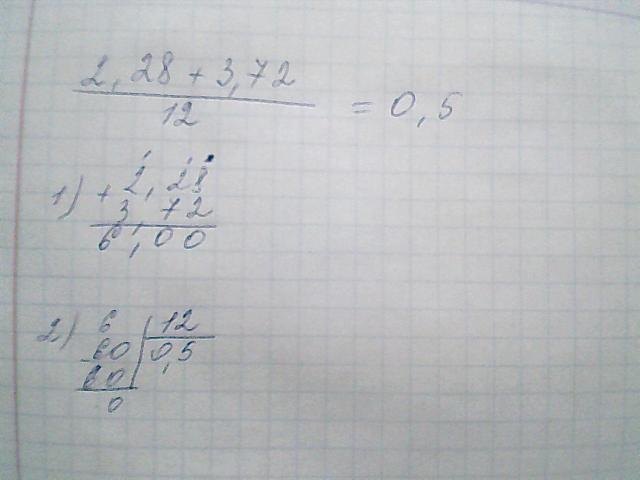 2,28 + 3,72
12
= 0,5
1) + 2,28
3,72
6,00
2) 6 12
60 0,5
60
0